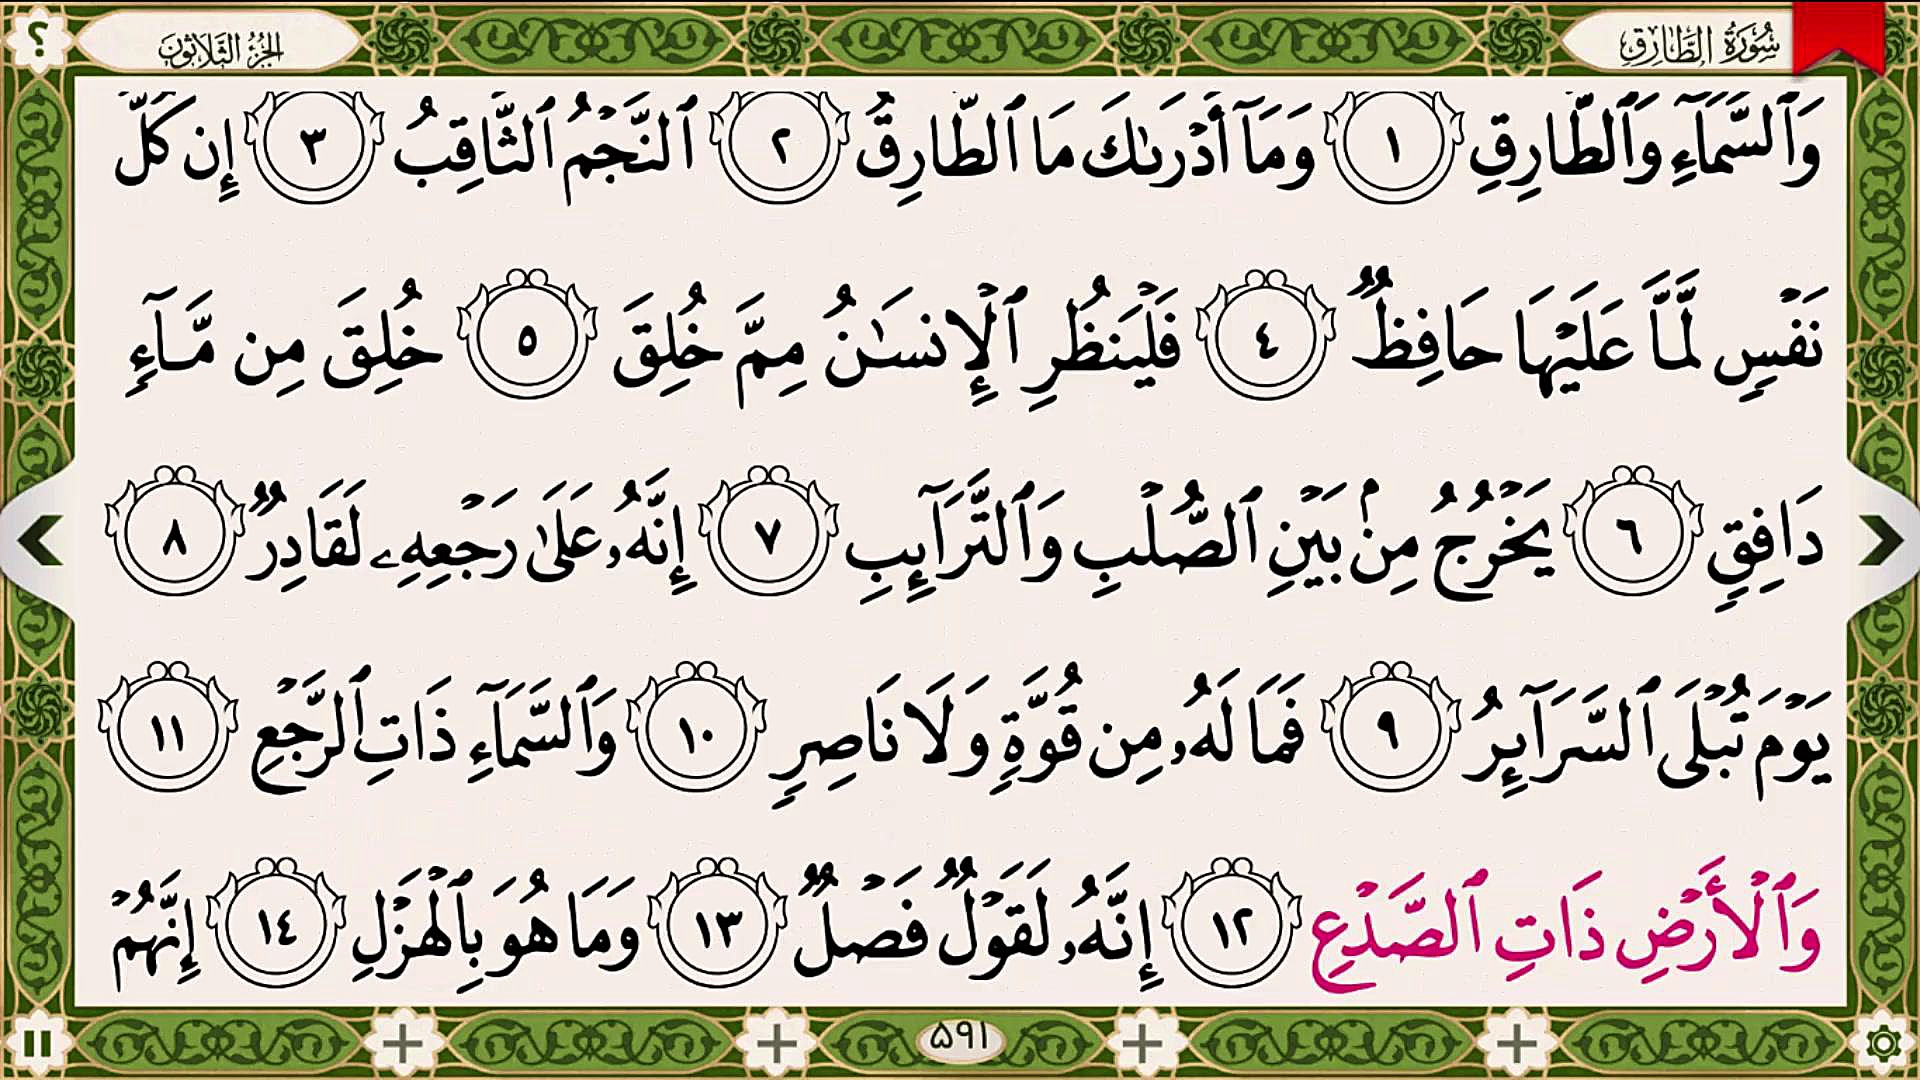 سُورَةُ الطَّارِقِ
الجُزْءُ الثَّلَاثُونَ
؟
وَٱلسَّمَآءِ وَٱلطَّارِقِ ١ وَمَآ أَدۡرَىٰكَ مَا ٱلطَّارِقُ ٢ ٱلنَّجۡمُ ٱلثَّاقِبُ ٣ إِن كُلُّ
نَفۡسٖ لَّمَّا عَلَيۡهَا حَافِظٞ ٤ فَلۡيَنظُرِ ٱلۡإِنسَٰنُ مِمَّ خُلِقَ ٥ خُلِقَ مِن مَّآءٖ
دَافِقٖ ٦ يَخۡرُجُ مِنۢ بَيۡنِ ٱلصُّلۡبِ وَٱلتَّرَآئِبِ ٧ إِنَّهُۥ عَلَىٰ رَجۡعِهِۦ لَقَادِرٞ ٨
يَوۡمَ تُبۡلَى ٱلسَّرَآئِرُ ٩ فَمَا لَهُۥ مِن قُوَّةٖ وَلَا نَاصِرٖ ١٠ وَٱلسَّمَآءِ ذَاتِ ٱلرَّجۡعِ ١١
وَٱلۡأَرۡضِ ذَاتِ ٱلصَّدۡعِ ١٢ إِنَّهُۥ لَقَوۡلٞ فَصۡلٞ ١٣ وَمَا هُوَ بِٱلۡهَزۡلِ ١٤ إِنَّهُمۡ
۵۹۱